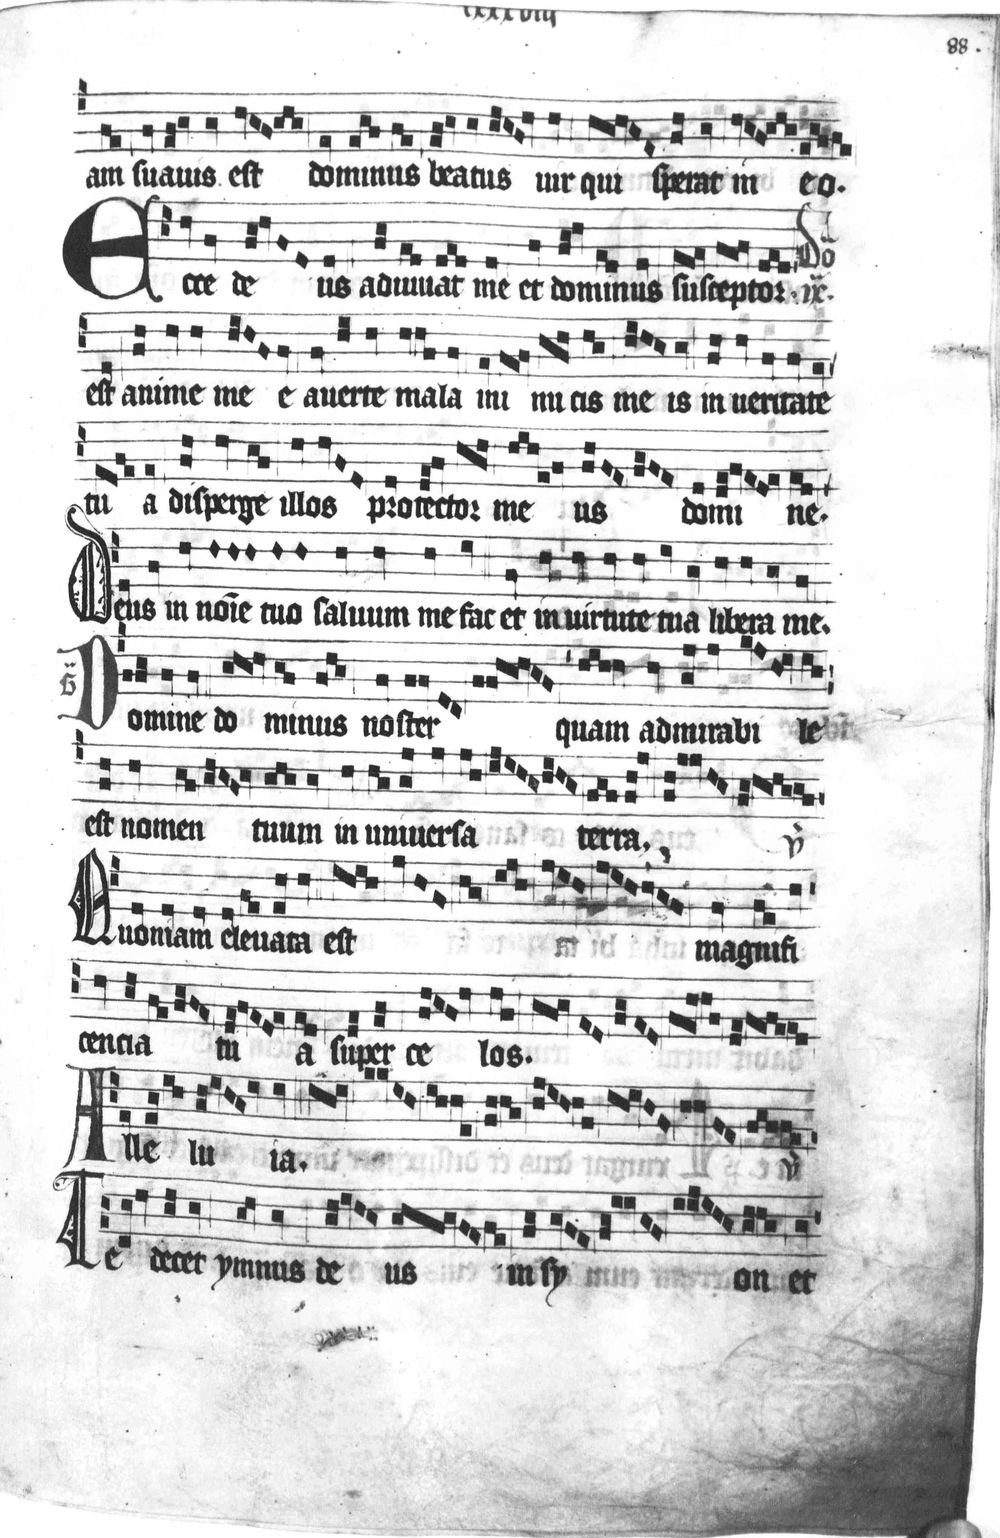 lxxxviij
88.
am suauis est dominus beatus uir qui sperat in eo.
Ecce de us adiuuat me et dominus susceptor .ix. Dō
est anime me e auerte mala ini mi cis me is in ueritate
tu a disperge illos protector me us domi ne.
Deus in noīe tuo saluum me fac et in uirtute tua libera me.
Domine do minus noster quam admirabi le
est nomen tuum in uniuersa terra. v̄
Quoniam eleuata est magnifi
cencia tu a super ce los.
Alle lu ia. v̄
Te decet ymnus de us in sy on et